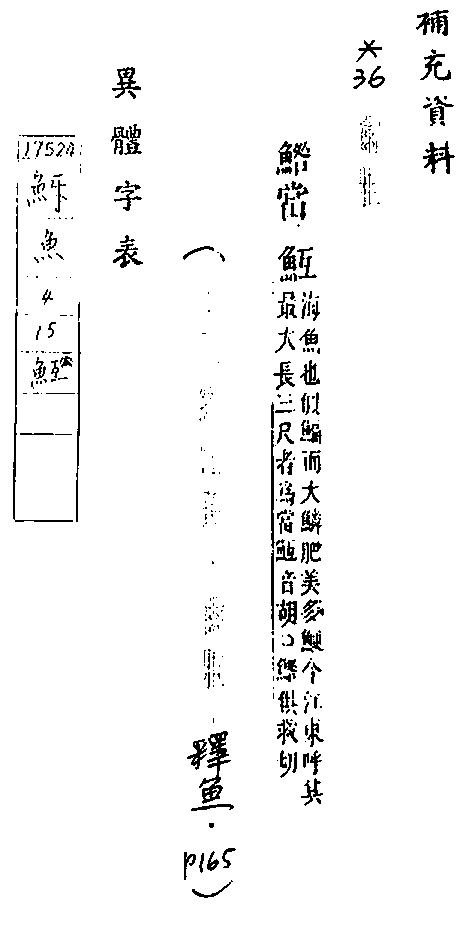 補充資料
*36
鯦當魱
海魚也似鯿而大鱗肥美多鯁今江東呼其
最大長三尺者為當魱音胡 鯦俱救切
( 釋魚·P165)
異體字表
17524
魚
4
15
魱